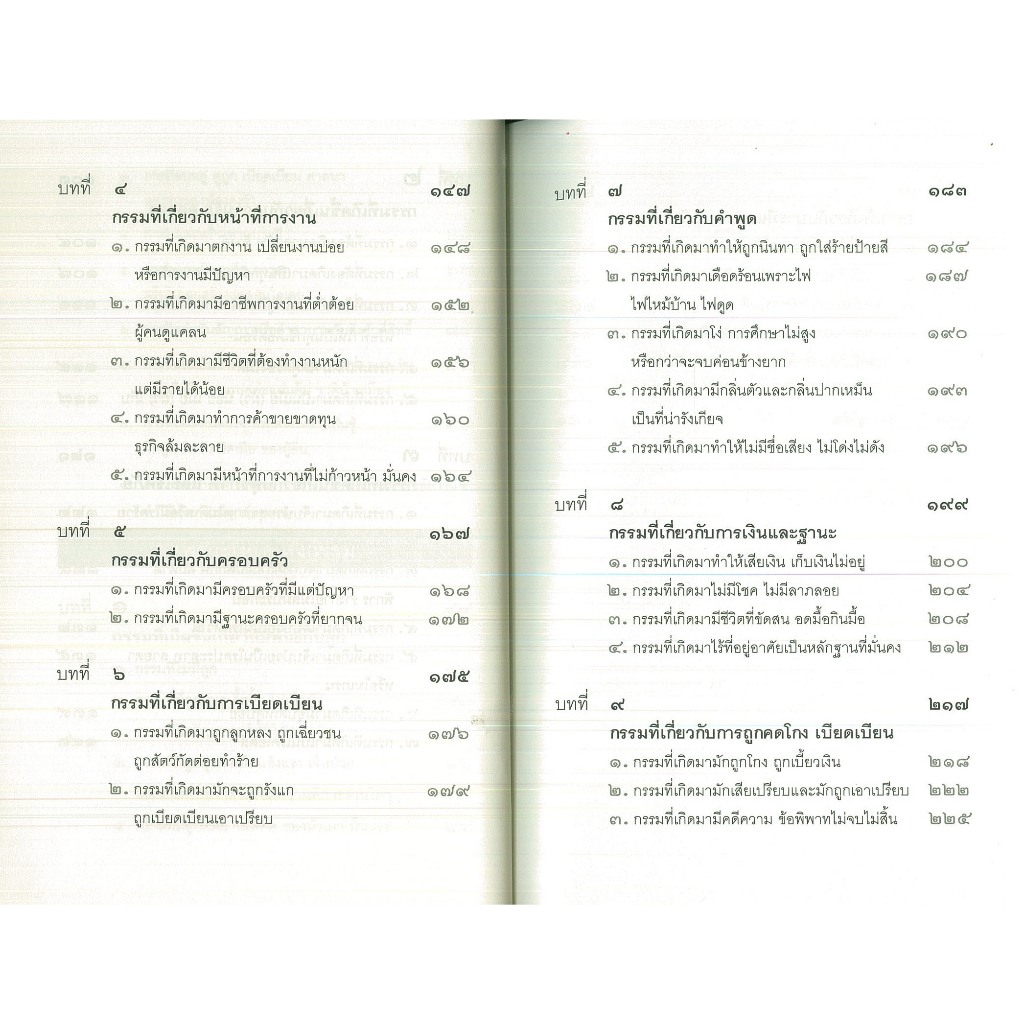 บทที่ ๔ ๑๔๗
กรรมที่เกี่ยวกับหน้าที่การงาน
๑. กรรมที่เกิดมาตกงาน เปลี่ยนงานบ่อย ๑๔๘
หรือการงานมีปัญหา
๒. กรรมที่เกิดมามีอาชีพการงานที่ต่ำต้อย ๑๕๒
ผู้คนดูแคลน
๓. กรรมที่เกิดมามีชีวิตที่ต้องทำงานหนัก ๑๕๖
แต่มีรายได้น้อย
๔. กรรมที่เกิดมาทำการค้าขายขาดทุน ๑๖๐
ธุรกิจล้มละลาย
๕. กรรมที่เกิดมามีหน้าที่การงานที่ไม่ก้าวหน้า มั่นคง ๑๖๔
บทที่ ๕ ๑๖๗
กรรมที่เกี่ยวกับครอบครัว
๑. กรรมที่เกิดมามีครอบครัวที่มีแต่ปัญหา ๑๖๘
๒. กรรมที่เกิดมามีฐานะครอบครัวที่ยากจน ๑๗๒
บทที่ ๖ ๑๗๕
กรรมที่เกี่ยวกับการเบียดเบียน
๑. กรรมที่เกิดมาถูกลูกหลง ถูกเฉี่ยวชน ๑๗๖
ถูกสัตว์กัดต่อยทำร้าย
๒. กรรมที่เกิดมามักจะถูกรังแก ๑๗๙
ถูกเบียดเบียนเอาเปรียบ
บทที่ ๗ ๑๘๓
กรรมที่เกี่ยวกับคำพูด
๑. กรรมที่เกิดมาทำให้ถูกนินทา ถูกใส่ร้ายป้ายสี ๑๘๔
๒. กรรมที่เกิดมาเดือดร้อนเพราะไฟ ๑๘๗
ไฟไหม้บ้าน ไฟดูด
๓. กรรมที่เกิดมาโง่ การศึกษาไม่สูง ๑๙๐
หรือกว่าจะจบค่อนข้างยาก
๔. กรรมที่เกิดมามีกลิ่นตัวและกลิ่นปากเหม็น ๑๙๓
เป็นที่น่ารังเกียจ
๕. กรรมที่เกิดมาทำให้ไม่มีชื่อเสียง ไม่โด่งไม่ดัง ๑๙๖
บทที่ ๘ ๑๙๙
กรรมที่เกี่ยวกับการเงินและฐานะ
๑. กรรมที่เกิดมาทำให้เสียเงิน เก็บเงินไม่อยู่ ๒๐๐
๒. กรรมที่เกิดมาไม่มีโชค ไม่มีลาภลอย ๒๐๔
๓. กรรมที่เกิดมามีชีวิตที่ขัดสน อดมื้อกินมื้อ ๒๐๘
๔. กรรมที่เกิดมาไร้ที่อยู่อาศัยเป็นหลักฐานที่มั่นคง ๒๑๒
บทที่ ๙ ๒๑๗
กรรมที่เกี่ยวกับการถูกคดโกง เบียดเบียน
๑. กรรมที่เกิดมามักถูกโกง ถูกเบี้ยวเงิน ๒๑๘
๒. กรรมที่เกิดมามักเสียเปรียบและมักถูกเอาเปรียบ ๒๒๒
๓. กรรมที่เกิดมามีคดีความ ข้อพิพาทไม่จบไม่สิ้น ๒๒๕